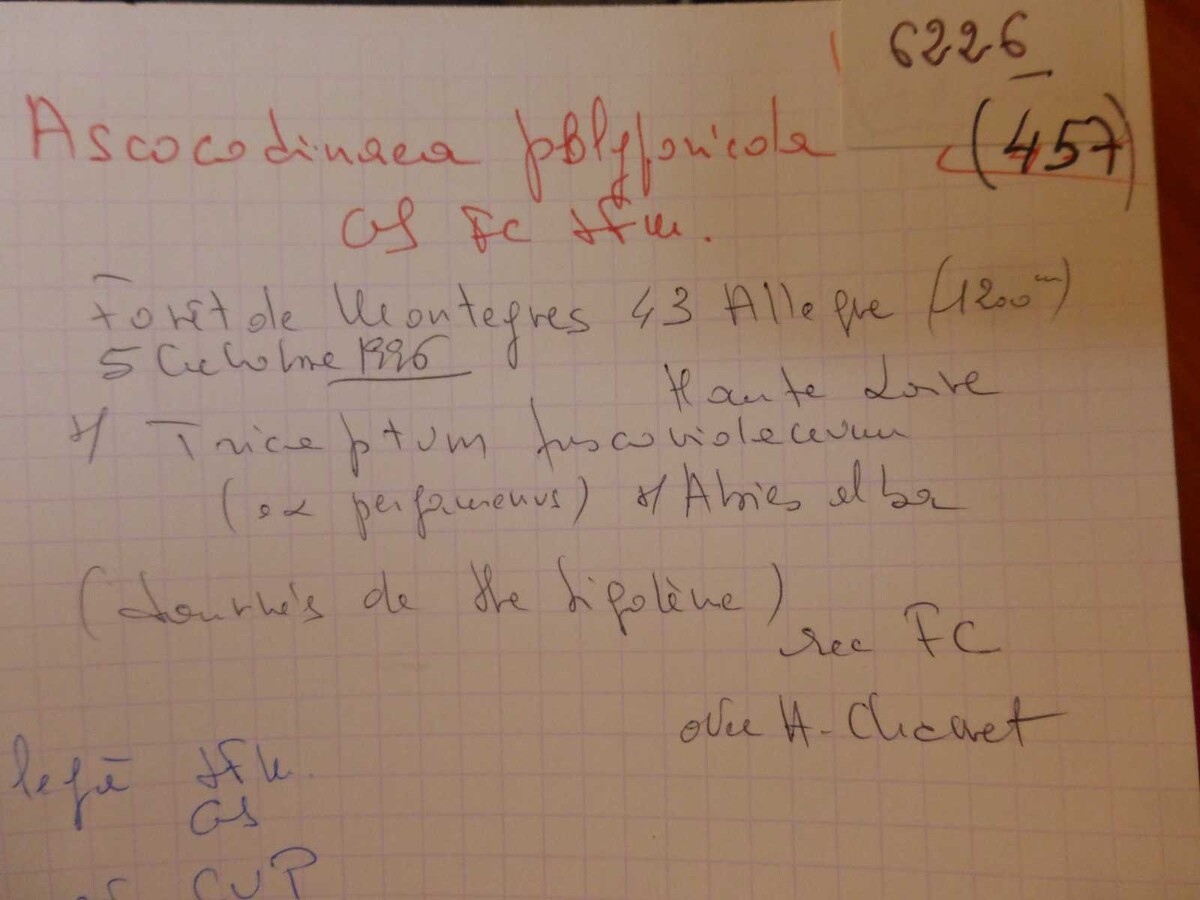 6226
Ascocodinaea polyporicola
(457)
GS FC
Forêt de Montegres 43 Allegre (1200m)
5 Octobre 1996
Haute Loire
s/ Tricaptum fuscoviolaceum
(ex pergamenus) s/ Abies alba
(Tournés de Ste Sigolène)
rec FC
avec A. Chavet
GS
CVP